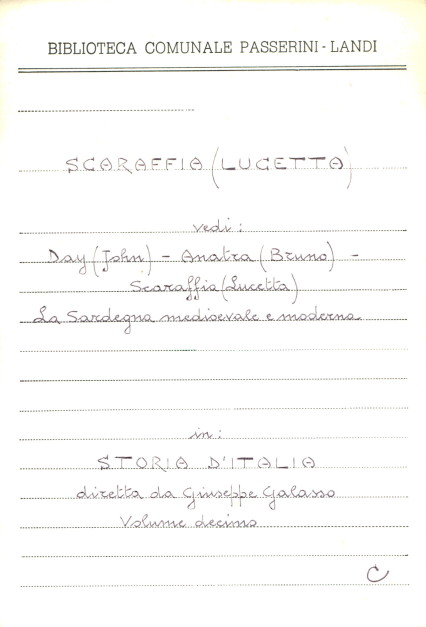 BIBLIOTECA COMUNALE PASSERINI - LANDI
SCARAFFIA (LUCETTA)
vedi:
Day (John) - Anatra (Bruno) -
Scaraffia (Lucetta)
La Sardegna medioevale e moderna
in:
STORIA D'ITALIA
diretta da Giuseppe Galasso
Volume decimo
C